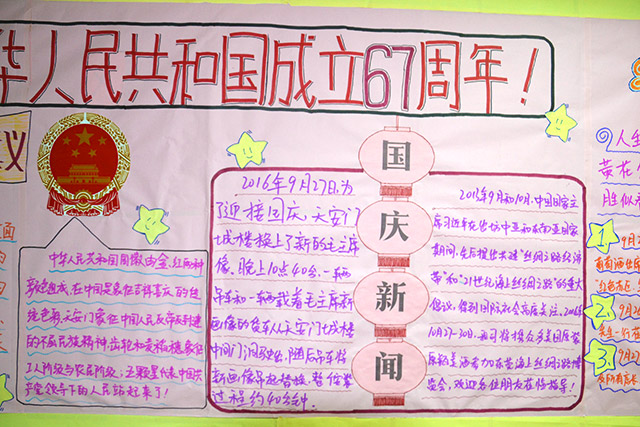 华人民共和国成立67周年！
议
中华人民共和国国徽由金、红两种
颜色组成,在中国是象征吉祥喜庆的
色;天安门象征中国人民反帝反封建
的不屈民族精神;齿轮和麦稻穗象征
工人阶级与农民阶级;五颗星代表中国共
产党领导下的人民站起来了!
2016年9月27日,为
了迎接国庆,天安门
城楼换上了新的毛主席
像。晚上10点40分,一辆
吊车和一辆载着毛主席新
画像的货车从天安门城楼
中间门洞驶出,随后吊车将
新画像吊起替换,替换掌
过程约40分钟。
国
庆
新
闻
2013年9月和10月,中国国家主
席习近平在出访中亚和东南亚国家
期间,先后提出共建"丝绸之路经济
带"和"21世纪海上丝绸之路"的重大
倡议,得到国际社会高度关注。2016
10月27-30日,
海上丝绸之路博
览会,欢迎各位朋友莅临指导!
人生
黄花
胜似
1
9月2
2
3
9月2